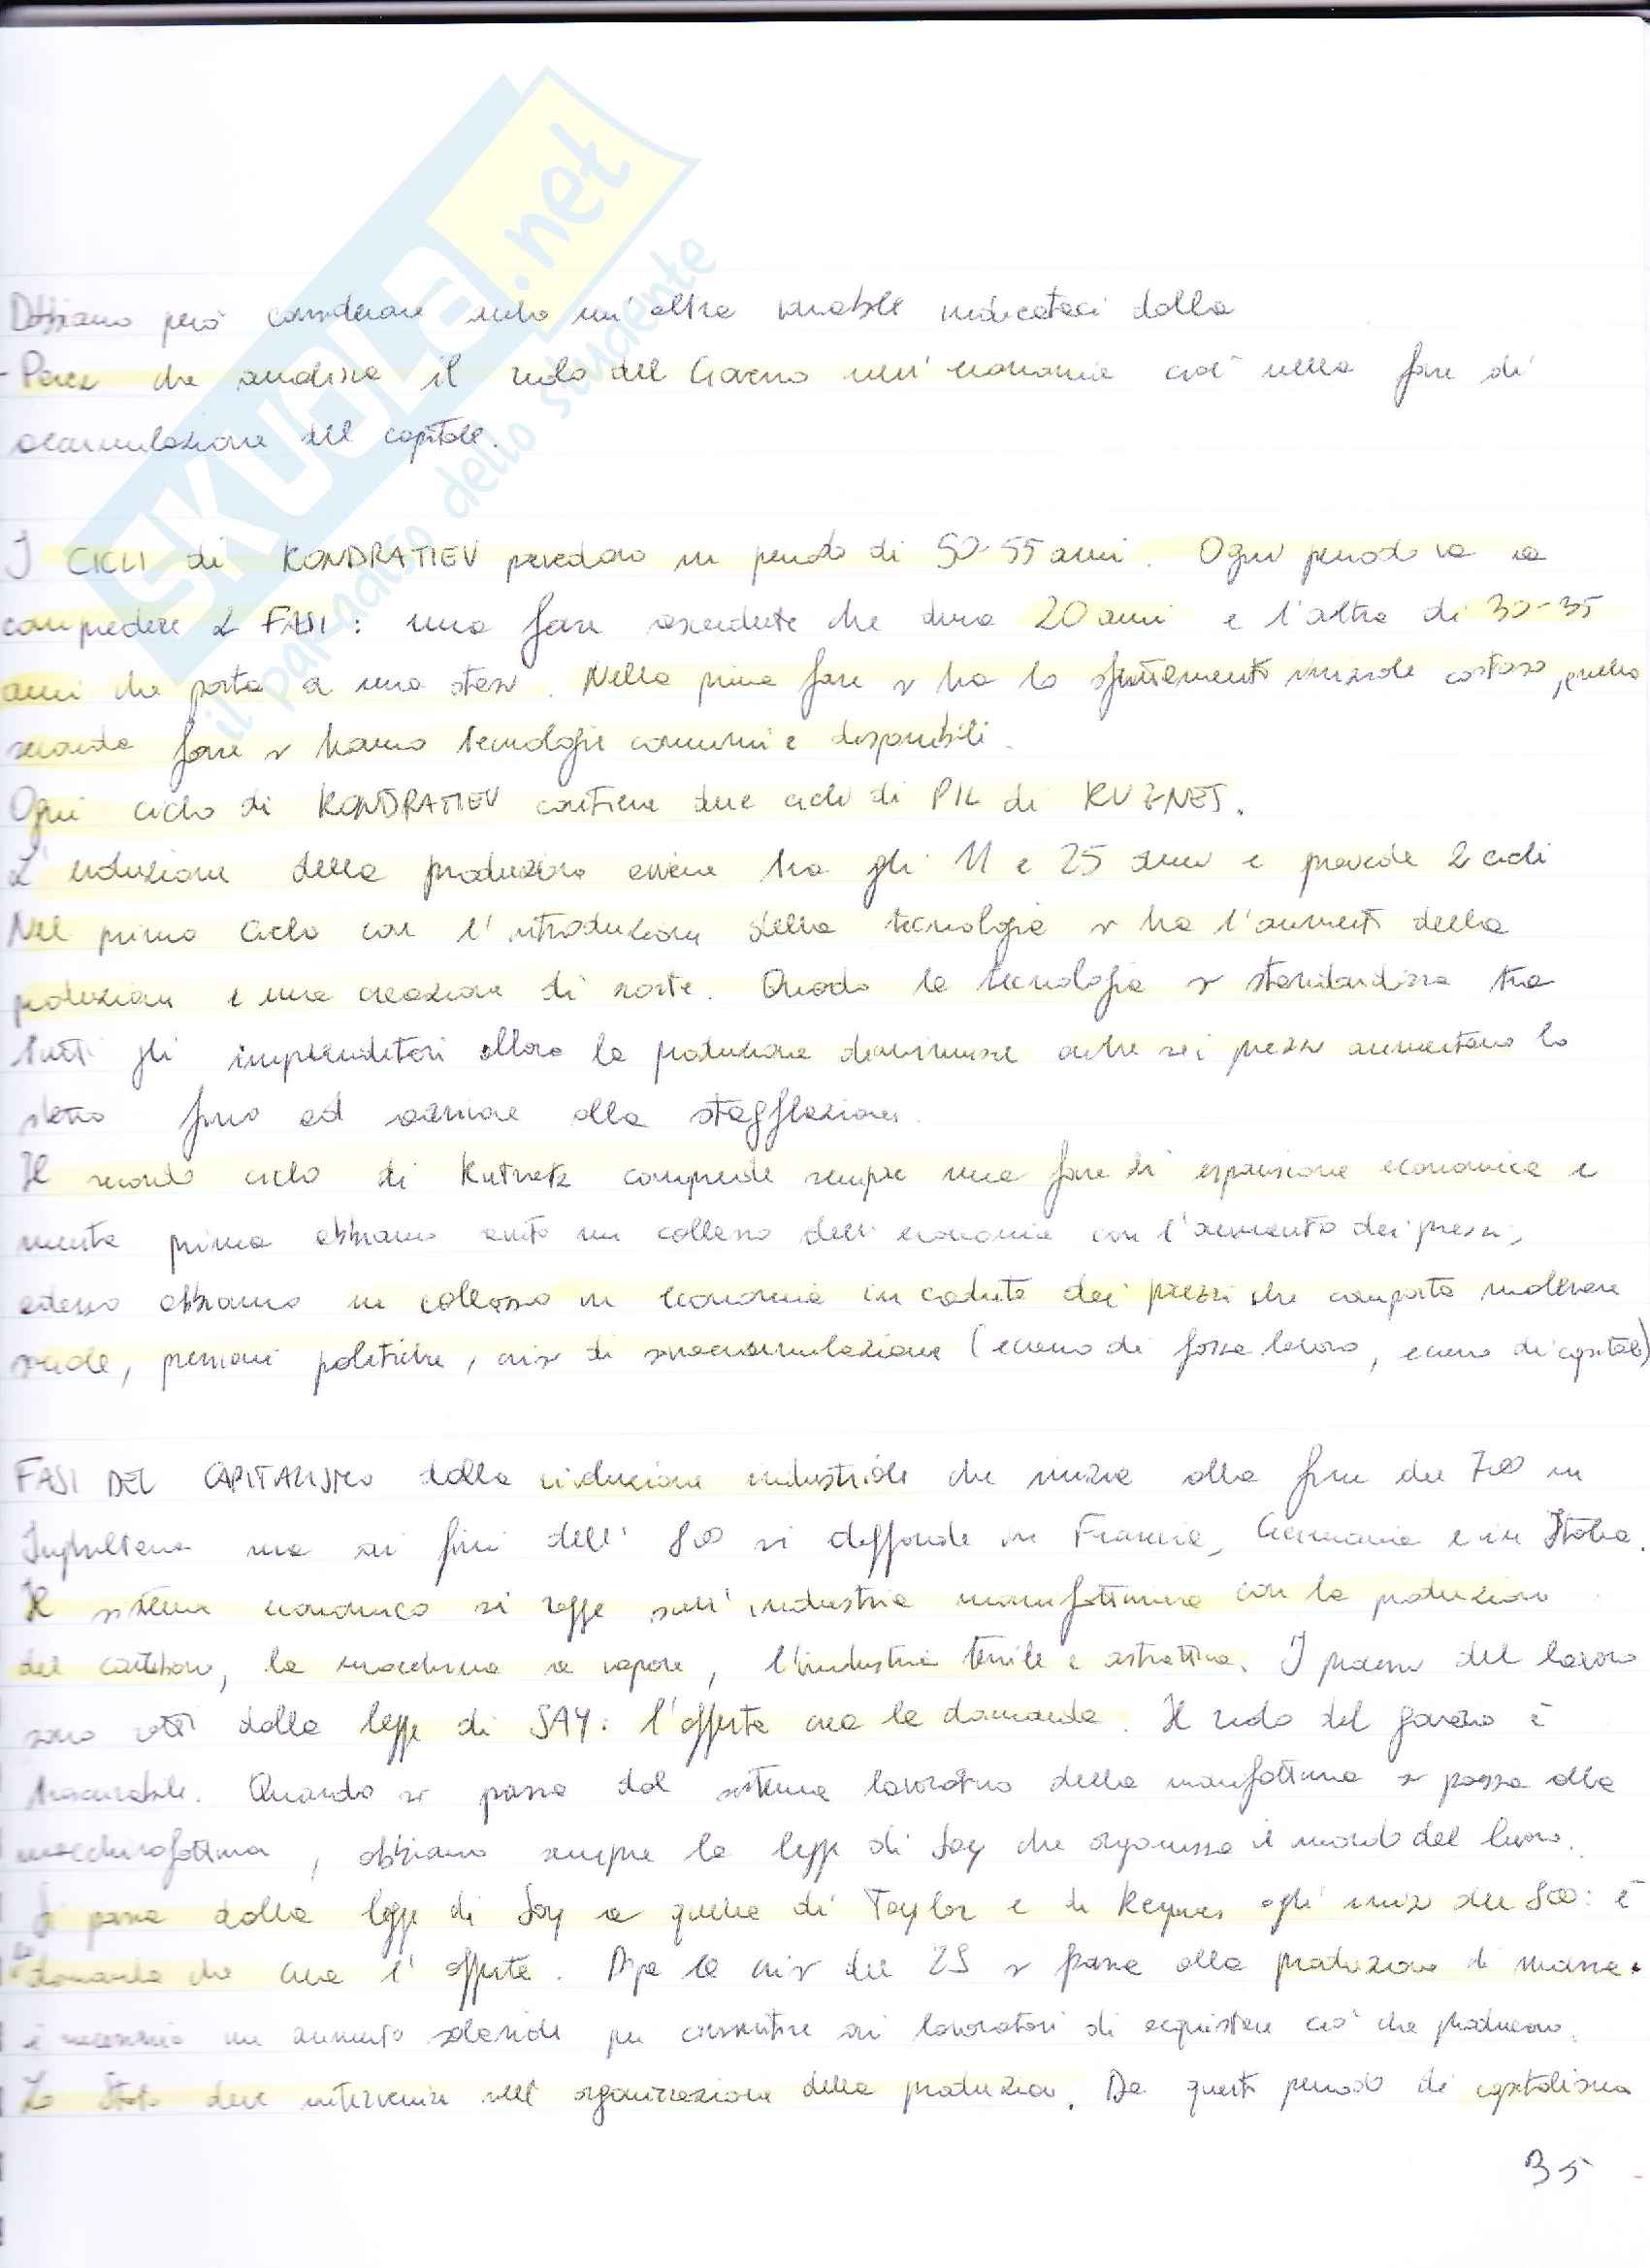 SKUOLA.net
il paradiso dello studente
Dobbiamo però considerare un'altra variabile indicataci dalla
- Perez che analizza il ruolo del Governo nell'economia cioè nella fase di
accumulazione del capitale.
I CICLI di KONDRATIEV prevedono un periodo di 50-55 anni. Ogni periodo va a
compredere 2 FASI: una fase ascendente che dura 20 anni e l'altra di 30-35
anni che porta a una stasi. Nella prima fase si ha lo sfruttamento iniziale costoso, nella
seconda fase si hanno tecnologie comuni e disponibili.
Ogni ciclo di KONDRATIEV contiene due cicli di PIL di KUZNETS.
L'evoluzione della produzione avviene tra gli 11 e 25 anni e prevede 2 cicli
Nel primo ciclo con l'introduzione della tecnologia si ha l'aumento della
produzione e una creazione di Quado la tecnologia si standardizza tra
tutti gli imprenditori allora la produzione diminuisce anche se i prezzi aumentano lo
stesso fino ad arrivare alla stagflazione.
Il secondo ciclo di Kutnetz comprende sempre una fase di espansione economica e
mentre prima abbiamo avuto un collasso dell'economia con l'aumento dei prezzi,
adesso abbiamo un collasso in economia in caduta dei prezzi che comporta malessere
sociale, pressioni politiche, crisi di sovraccumulazione (eccesso di forza lavoro, eccesso di capitale)
FASI DEL CAPITALISMO dalla rivoluzione industriale che inizia alla fine del 700 in
Inghilterra ma ai fini dell'800 si diffonde in Francia, Germania e in Italia.
Il sistema economico si regge sull'industria manifatturiera con la produzione
del carbone, la macchina a vapore, l'industria tessile e estrattiva. I processi del lavoro
sono dalla legge di SAY: l'offerta crea la domanda. Il ruolo del governo è
trascurabile. Quando si passa dal sistema lavorativo della manifattura si passa alla
macchinofattura, abbiamo sempre la legge di Say che organizza il mondo del lavoro.
Si passa dalla legge di Say a quella di Taylor e di Keynes agli inizi del 900: è
la domanda che crea l'offerta. Dopo la crisi del 29 si passa alla produzione di massa.
è necessario un aumento salariale per consentire ai lavoratori di acquistare ciò che producono.
Lo Stato deve intervenire nell'organizzazione della produzione. Da questo periodo di capitalismo
35